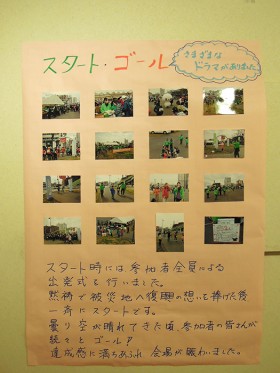 スタート・ゴール
さまざまな
ドラマがありました
スタート時には参加者全員による
出発式を行いました。
黙祷で被災地へ復興の想いを捧げた後
一斉にスタートです。
曇り空が晴れてきた頃、参加者の皆さんが
続々とゴール!!
達成感に満ちあふれ会場が賑わいました。